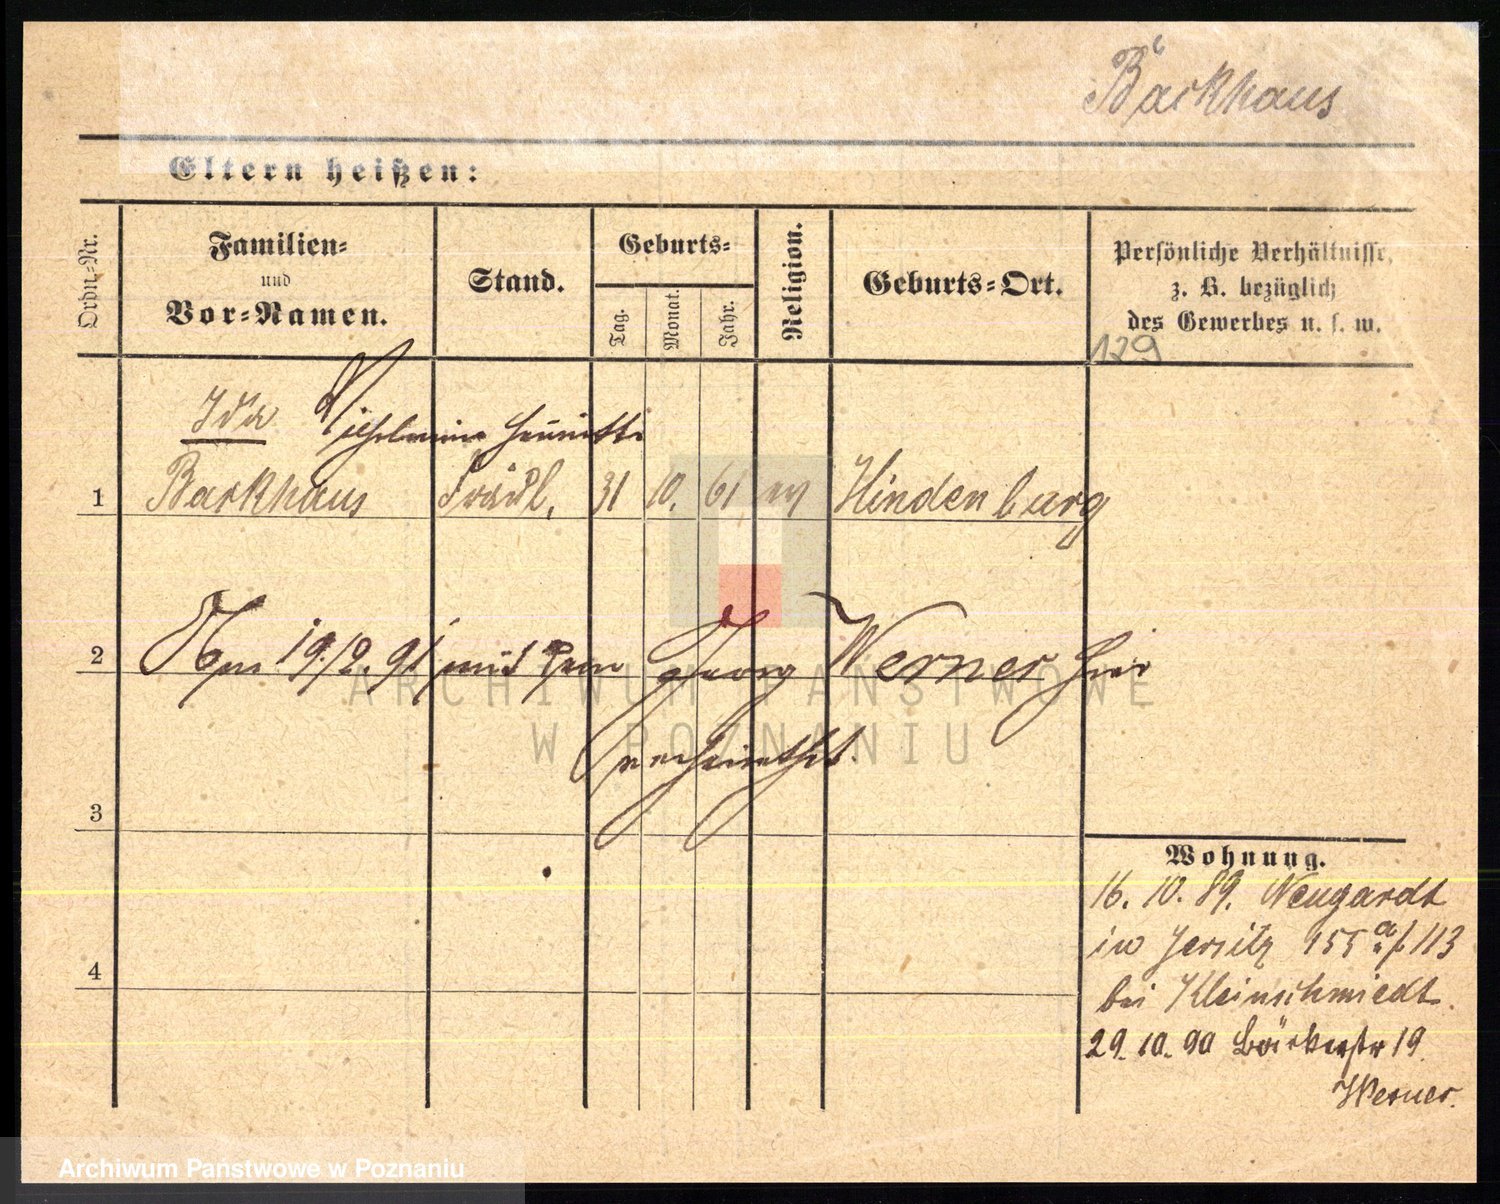 Backhaus
Eltern heißen:
Ordn.-Nr.
Familien-
und
Vor-Namen.
Stand.
Geburts-
Tag.
Monat.
Jahr.
Religion.
Geburts-Ort.
Persönliche Verhältnisse,
z. B. bezüglich
des Gewerbes u. s. w.
129
Ida Wilhelmine Henriette
1 Backhaus Fräul. 31 10. 61 ev Hindenburg
2 Am 19./2. 91 mit dem Georg Werner hier
verheirathet.
3
4
Wohnung.
16. 10. 89. Neugardt
in Jersitz 155 a f 113
bei Kleinschmiedt.
29. 10. 90 Bäckerstr 19.
Werner.
ARCHIWUM PAŃSTWOWE
W POZNANIU
Archiwum Państwowe w Poznaniu